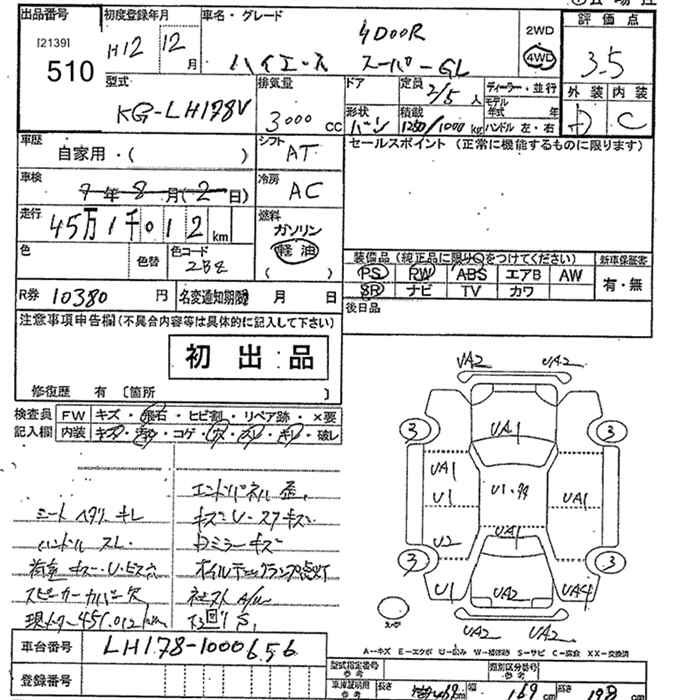 出品番号
[2139]
510
初度登録年月
H12年 12月
車名・グレード
4DOOR
ハイエース スーパーGL
2WD
4WD
評価点
3.5
外装 内装
D C
型式
KG-LH178V
排気量
3000 CC
ドア
形状
バン
定員
2/5人
積載
1250/1000kg
ディーラー・並行
モデル年式 年
ハンドル 左・右
車歴
自家用・( )
シフト
AT
車検
7年8月(2日)
冷房
AC
走行
45万1千012km
燃料
ガソリン
軽油
( )
色
色替
色コード
2B8
R券 10380円
名変通知期間 月 日
セールスポイント (正常に機能するものに限ります)
装備品 (純正品に限り○をつけてください)
PS RW ABS エアB AW
SR ナビ TV カワ
新車保証書
有・無
後日品
注意事項申告欄(不具合内容等は具体的に記入して下さい)
初出品
修復歴 有 [箇所 ]
検査員記入欄
FW キズ・飛石・ヒビ割・リペア跡・×要
内装 キズ・コゲ・穴・スレ・キレ・破レ
シート ヘタリ キレ
ハンドル スレ
荷室 キズ・U・ビス穴
スピーカーカバー欠
現メーター 451,012km
エンドパネル 歪
キズ・U・スアキズ
ドアミラーキズ
オイルチェックランプ点灯
UA2 UA2
3 3
UA1
UA1
U1
U1・
UA1
UA1
U2
3 3
U1
UA2
UA4
UA2 UA2
スペア
A-キズ E-エクボ U-凹み W-補修跡 S-サビ C-腐食 XX-交換済
車台番号
LH178-1000656
登録番号
型式指定番号 参考
類別区分番号 参考
車庫証明用 参考
長さ 469cm
幅 169cm
高さ 198cm